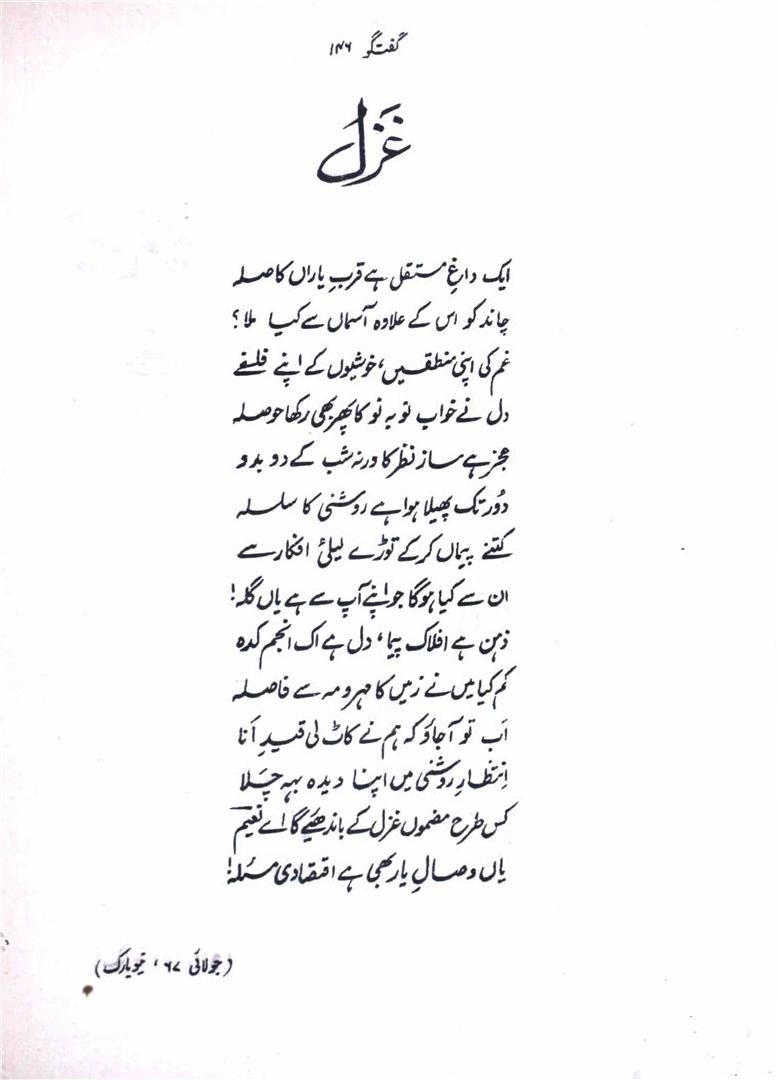 گفتگو ۱۴۶
غَزل
ایک داغِ مستقل ہے قربِ یاراں کا صلہ
چاند کو اس کے علاوہ آسماں سے کیا ملا؟
غم کی اپنی منطقیں، خوشیوں کے اپنے فلسفے
دل نے خواب نو بہ نو کا پھر بھی رکھا حوصلہ
عجز ہے سازِ نظر کا ورنہ شب کے دو بدو
دُور تک پھیلا ہوا ہے روشنی کا سلسلہ
کتنے پیماں کر کے توڑے لیلیٔ افکار سے
ان سے کیا ہوگا جو اپنے آپ سے ہے یاں گلہ!
ذہن ہے افلاک پیما، دل ہے اک انجم کدہ
کم کیا میں نے زمیں کا مہر و مہ سے فاصلہ
اَب تو آجاؤ کہ ہم نے کاٹ لی قیدِ اَنا
اِنتظارِ روشنی میں اپنا دیدہ بہہ چَلا
کس طرح مضموں غزل کے باندھیئے گا اے نعیم
یاں وصالِ یار بھی ہے اقتصادی مسئلہ!
(جولائی ۶۷، نیویارک)